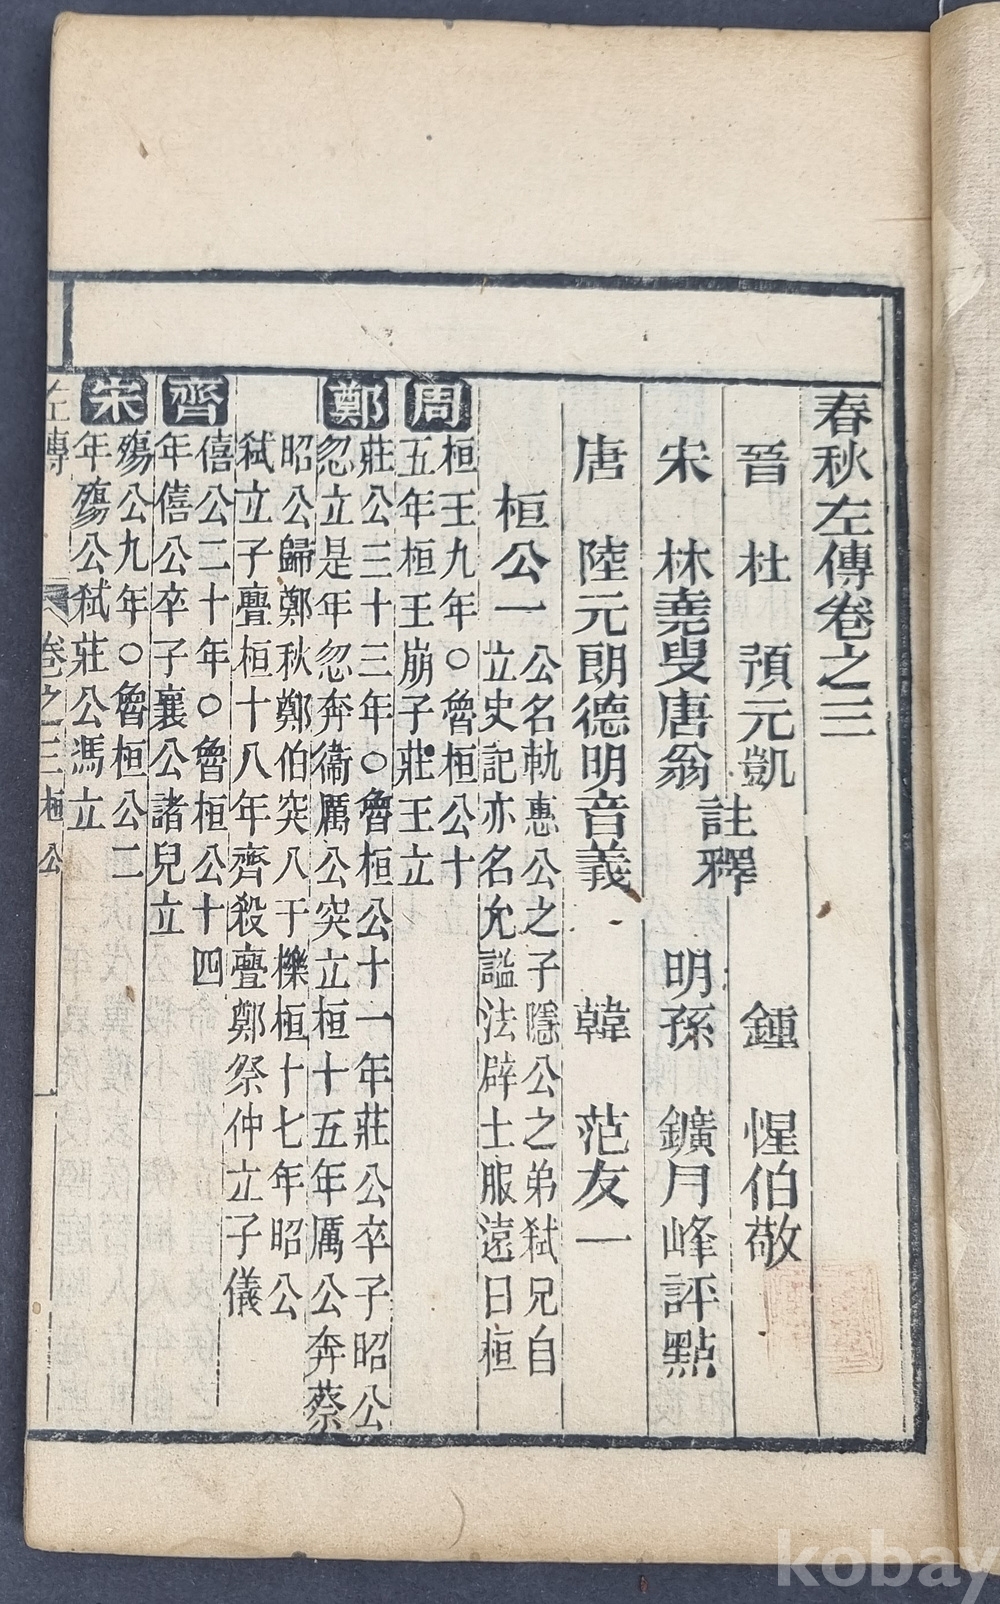 春秋左傳卷之三
晉 杜 預元凱 鍾 惺伯敬
註釋
宋 林堯叟唐翁 明孫 鑛月峰評點
唐 陸元朗德明音義 韓 范友一
桓公一
公名軌惠公之子隱公之弟弑兄自
立史記亦名允謚法辟土服遠曰桓
周
桓王九年○魯桓公十
五年桓王崩子莊王立
鄭
莊公三十三年○魯桓公十一年莊公卒子昭公
忽立是年忽奔衞厲公突立桓十五年厲公奔蔡
昭公歸鄭秋鄭伯突入于櫟桓十七年昭公
弑立子亹桓十八年齊殺亹鄭祭仲立子儀
齊
僖公二十年○魯桓公十四
年僖公卒子襄公諸兒立
宋
殤公九年○魯桓公二
年殤公弑莊公馮立
左傳 卷之三桓公 一
kobay